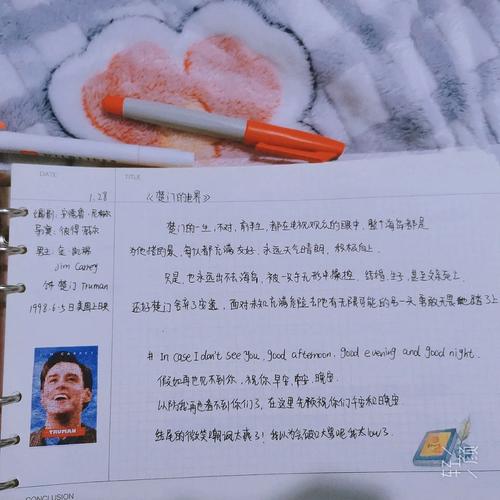 DATE
TITLE
1.28
《楚门的世界》
编剧:安德鲁·尼科尔
导演:彼得·威尔
男主:金·凯瑞
Jim Carrey
饰 楚门 Truman
1998.6.5日美国上映
楚门的一生,不对,前半生,都在电视观众的眼中,整个海岛都是
为他搭的景,每个人都充满友好,永远天气晴朗,积极向上.
只是,也永远出不去海岛,被一双手无形中操控,结婚,生子,甚至父亲死亡.
还好楚门舍弃了安逸,面对未知充满危险去也有无限可能的每一天勇敢无畏地踏了上
# In case I don't see you, good afternoon, good evening and good night.
假如再也见不到你,祝你早安,午安,晚安.
以防我再也看不到你们了,在这里先祝你们午安和晚安
结尾的微笑嘲讽太赞了!我以为会破口大骂呢我太low了.
JIM CARREY
TRUMAN
CONCLUSION